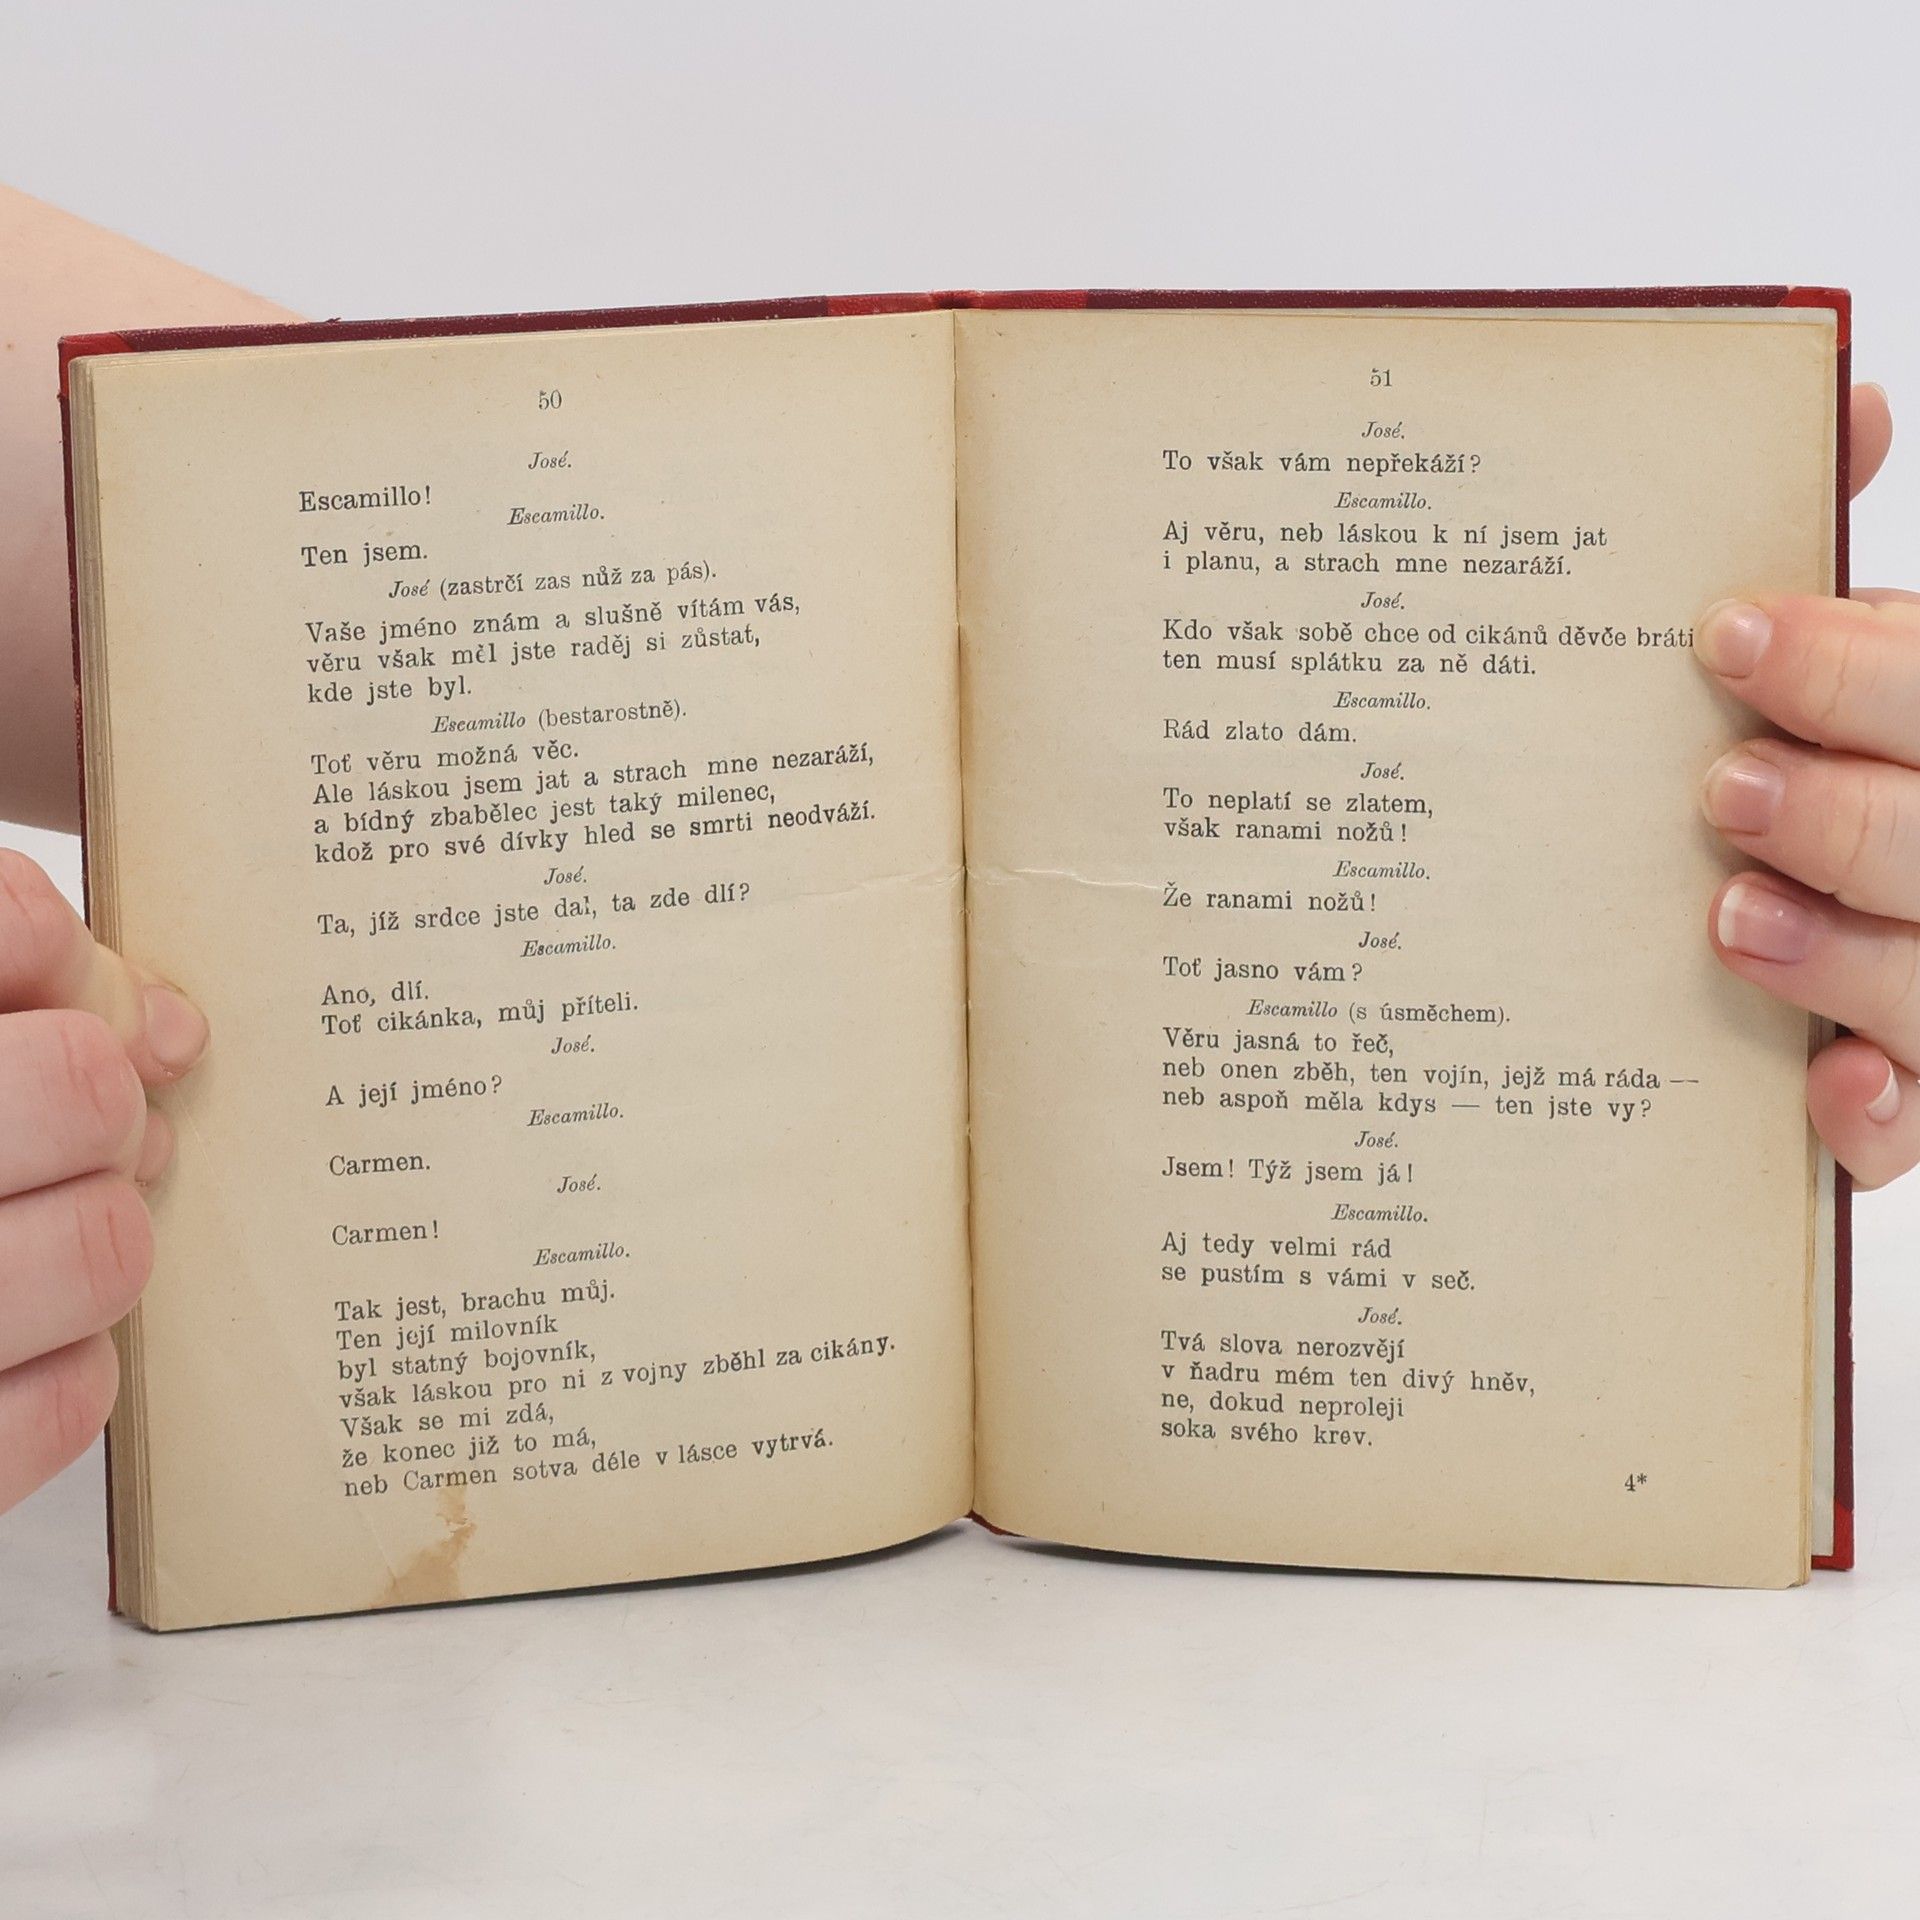 50
José.
Escamillo!
Escamillo.
Ten jsem.
José (zastrčí zas nůž za pás).
Vaše jméno znám a slušně vítám vás,
věru však měl jste raděj si zůstat,
kde jste byl.
Escamillo (bestarostně).
Toť věru možná věc.
Ale láskou jsem jat a strach mne nezaráží,
a bídný zbabělec jest taký milenec,
kdož pro své dívky hled se smrti neodváží.
José.
Ta, jíž srdce jste dal, ta zde dlí?
Escamillo.
Ano, dlí.
Toť cikánka, můj příteli.
José.
A její jméno?
Escamillo.
Carmen.
José.
Carmen!
Escamillo.
Tak jest, brachu můj.
Ten její milovník
byl statný bojovník,
však láskou pro ni z vojny zběhl za cikány.
Však se mi zdá,
že konec již to má,
neb Carmen sotva déle v lásce vytrvá.
51
José.
To však vám nepřekáží?
Escamillo.
Aj věru, neb láskou k ní jsem jat
i planu, a strach mne nezaráží.
José.
Kdo však sobě chce od cikánů děvče bráti
ten musí splátku za ně dáti.
Escamillo.
Rád zlato dám.
José.
To neplatí se zlatem,
však ranami nožů!
Escamillo.
Že ranami nožů!
José.
Toť jasno vám?
Escamillo (s úsměchem).
Věru jasná to řeč,
neb onen zběh, ten vojín, jejž má ráda —
neb aspoň měla kdys — ten jste vy?
José.
Jsem! Týž jsem já!
Escamillo.
Aj tedy velmi rád
se pustím s vámi v seč.
José.
Tvá slova nerozvějí
v ňadru mém ten divý hněv,
ne, dokud neproleji
soka svého krev.
4*